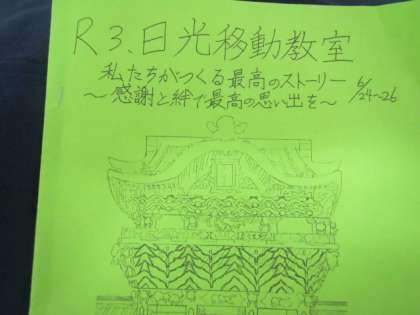 R3.日光移動教室
私たちがつくる最高のストーリー
～感謝と絆で最高の思い出を～ 6/24~26